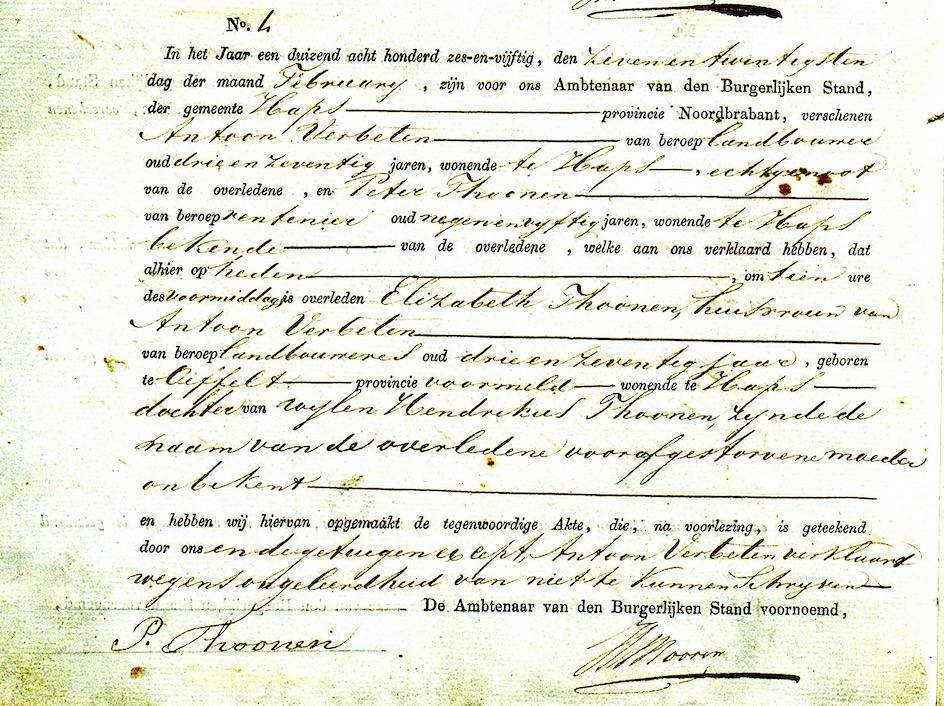 No. 4
In het Jaar een duizend acht honderd zes-en-vijftig, den zevenentwintigsten
dag der maand February, zijn voor ons Ambtenaar van den Burgerlijken Stand,
der gemeente Haps provincie Noordbrabant, verschenen
Antoon Verbeten van beroep landbouwer
oud drie en zeventig jaren, wonende te Haps, echtgenoot
van de overledene, en Peter Thoonen
van beroep rentenier oud negenenvyftig jaren, wonende te Haps
bekende van de overledene, welke aan ons verklaard hebben, dat
alhier op heden, om tien ure
des voormiddags is overleden Elizabeth Thoonen, huisvrouw van
Antoon Verbeten
van beroep landbouweres oud drie en zeventig jaar, geboren
te Oiffelt provincie voormeld wonende te Haps
dochter van wylen Hendrikus Thoonen, zynde de
naam van de overledene voorafgestorvene moeder
onbekent
en hebben wij hiervan opgemaakt de tegenwoordige Akte, die, na voorlezing, is geteekend
door ons en de getuigen except, Antoon Verbeten verklaard
wegens ongeleerdheid van niet te kunnen schryven
De Ambtenaar van den Burgerlijken Stand voornoemd,
P. Thoonen